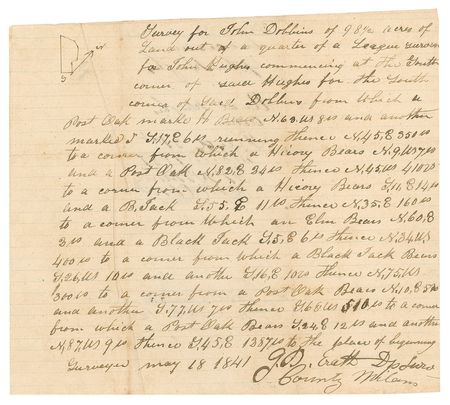 Survey for John Dobbins of 98 1/2 acres of
Land out of a quarter of a League Survey
for John Hughes commencing at the South
corner of said Hughes for the South
corner of Said Dobbins from which a
Post Oak marke H Bears N.63.W 8 vs and another
marked J S.17.E 6 vs running thence N.45.E 350 vs
to a corner from which a Hicory Bears N.9.W 7 vs
and a Post Oak N.82.E 24 vs thence N.45.W 410 vs
to a corner from which a Hicory Bears S.11.E 14 vs
and a B. Jack S.55.E 11 vs thence N.35.E 160 vs
to a corner from Which an Elm Bears N.60.E
3 vs and a Black Jack S.5.E 6 vs thence N.34.W
400 vs to a corner from which a Black Jack Bears
S.26.W 10 vs and another S.16.E 10 vs thence N.75.W.
300 vs to a corner from a Post Oak Bears N.10.E 5 vs
and another S.77.W 7 vs thence S.68.W 510 vs to a corner
from which a Post Oak Bears S.24.E 12 vs and another
N.87.W 9 vs thence S.45.E 1357 vs to the place of begining
Surveyed may 18 1841 G.B. Erath Dp Surv
County Milam